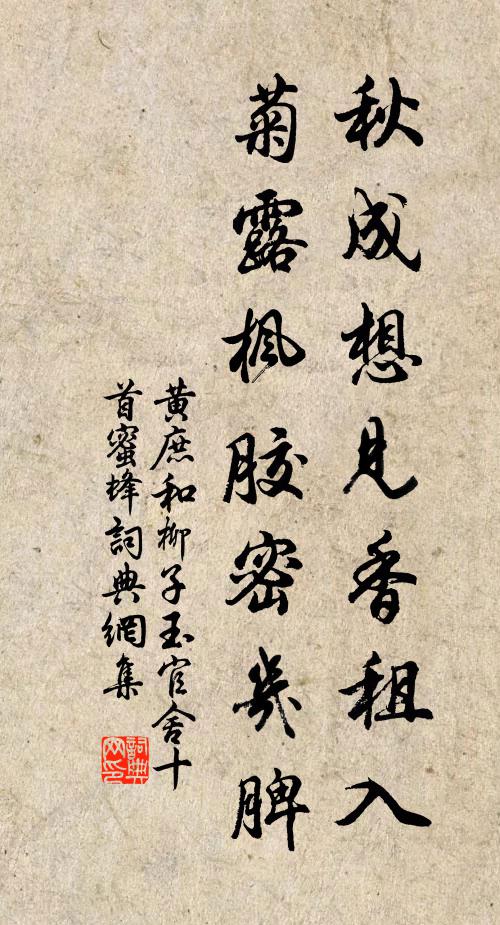 秋成想見香租入
菊露楓膠密幾脾
黃庶和柳子玉官舍十
首蜜蜂詞典網集
詞典
网印